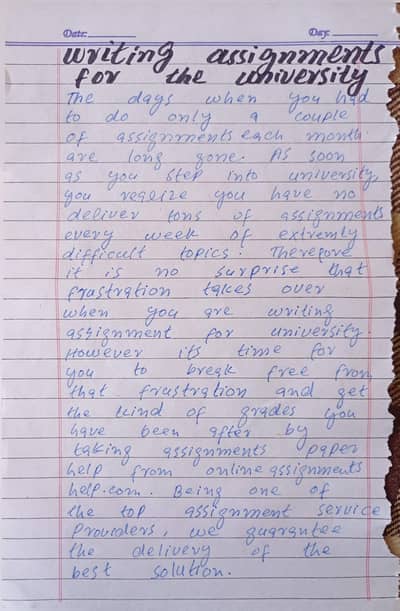 Date: Day:
writing assignments
for the university
The days when you had
to do only a couple
of assignments each month
are long gone. As soon
as you step into university,
you realize you have no
deliver tons of assignments
every week of extremly
difficult topics. Therefore
it is no surprise that
frustration takes over
when you are writing
assignment for university.
However its time for
you to break free from
that frustration and get
the kind of grades you
have been after by
taking assignments paper
help from online assignments
help.com. Being one of
the top assignment service
Providers, we guarantee
the delivery of the
best solution.